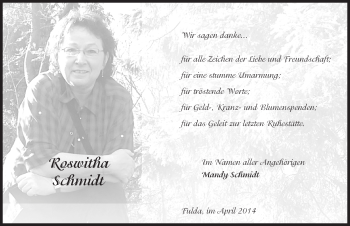 Wir sagen danke...
für alle Zeichen der Liebe und Freundschaft;
für eine stumme Umarmung;
für tröstende Worte;
für Geld-, Kranz- und Blumenspenden;
für das Geleit zur letzten Ruhestätte.
Roswitha
Schmidt
Im Namen aller Angehörigen
Mandy Schmidt
Fulda, im April 2014